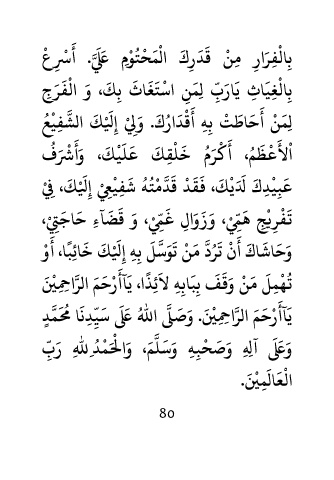 بِالْفِرَارِ مِنْ قَدَرِكَ الْمَحْتُوْمِ عَلَيَّ. أَسْرِعْ
بِالْغِيَاثِ يَارَبِّ لِمَنِ اسْتَغَاثَ بِكَ، وَ الْفَرَجِ
لِمَنْ أَحَاطَتْ بِهِ أَقْدَارُكَ. وَلِيْ إِلَيْكَ الشَّفِيْعُ
اْلأَعْظَمُ، أَكْرَمُ خَلْقِكَ عَلَيْكَ، وَأَشْرَفُ
عَبِيْدِكَ لَدَيْكَ، فَقَدْ قَدَّمْتُهُ شَفِيْعِيْ إِلَيْكَ، فِيْ
تَفْرِيْجِ هَمِّيْ، وَزَوَالِ غَمِّيْ، وَ قَضَآءِ حَاجَتِيْ،
وَحَاشَاكَ أَنْ تَرُدَّ مَنْ تَوَسَّلَ بِهِ إِلَيْكَ خَائِبًا، أَوْ
تُهْمِلَ مَنْ وَقَفَ بِبَابِهِ لاَئِذًا، يَآأَرْحَمَ الرَّاحِمِيْنَ
يَآأَرْحَمَ الرَّاحِمِيْنَ. وَصَلَّى اللهُ عَلَى سَيِّدِنَا مُحَمَّدٍ
وَعَلَى آلِهِ وَصَحْبِهِ وَسَلَّمَ، وَالْحَمْدُلِلهِ رَبِّ
الْعَالَمِيْنَ.
80